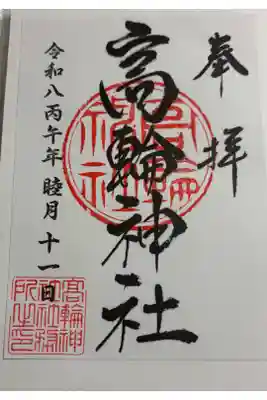 奉拝
高輪神社
令和八丙午年 睦月 十一日
高輪神社
髙輪神社社務所之印